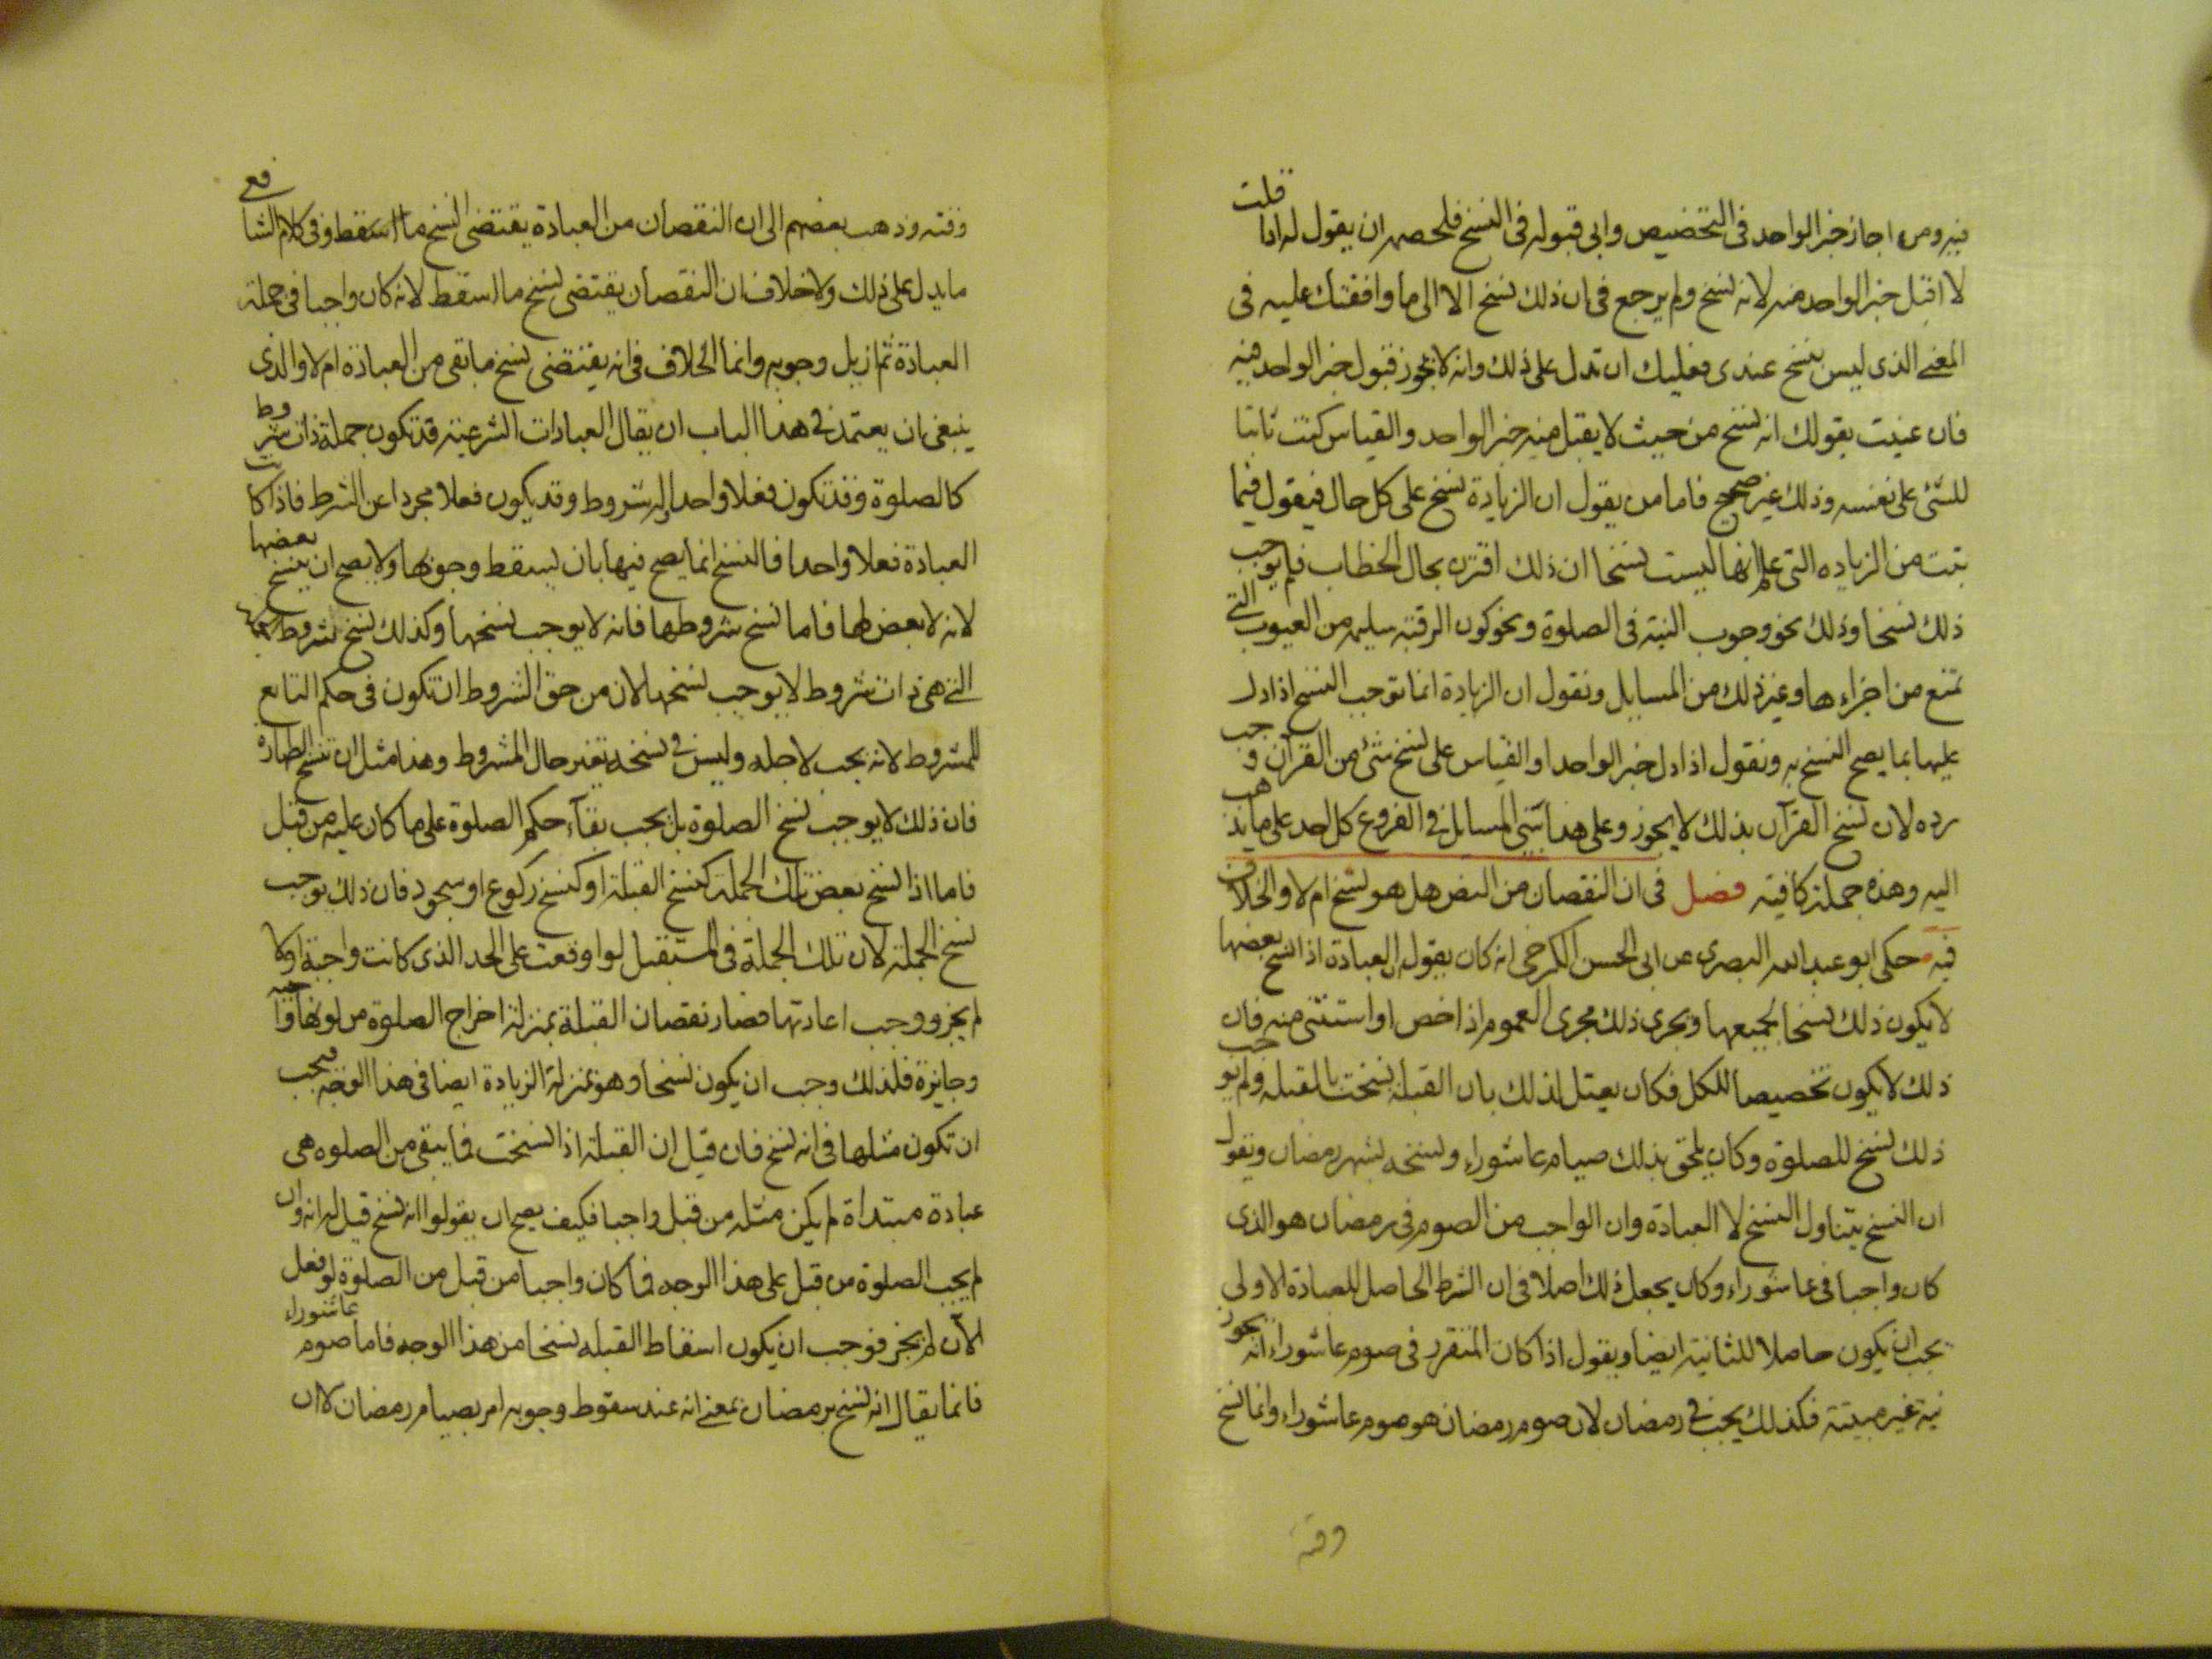 فيه ومن اجاز خبر الواحد في التخصيص وابى قبوله في النسخ فلخصمه ان يقول له اذا قلت
لا اقبل خبر الواحد فيه لانه نسخ ولم يرجع في ان ذلك نسخ الا الى ما وافقتك عليه في
المعنى الذي ليس بنسخ عندي فعليك ان تدل على ذلك وانه لا يجوز قبول خبر الواحد فيه
فان عنيت بقولك انه نسخ من حيث لا يقبل فيه خبر الواحد والقياس كنت بانيا
للشئ على نفسه وذلك غير صحيح فاما من يقول ان الزيادة نسخ على كل حال فيقول فيما
يثبت من الزياده التي علم انها ليست نسخا ان ذلك اقترن بحال الخطاب فلم يوجب
ذلك نسخا وذلك نحو وجوب النية في الصلوة ونحو كون الرقبة سليمه من العيوب التي
تمنع من اجزاءها وغير ذلك من المسايل ونقول ان الزيادة انما توجب النسخ اذا دل
عليها بما يصح النسخ به ونقول اذا دل خبر الواحد او القياس على نسخ شئ من القرآن وجب
رده لان نسخ القرآن بذلك لا يجوز وعلى هذا تبنى المسايل في الفروع كل احد على ما يذهب
اليه وهذه جملة كافية فصل في ان النقصان من النص هل هو نسخ ام لا والخلاف
فيه حكى ابو عبد الله البصري عن ابى الحسن الكرخي انه كان يقول ان العبادة اذا نسخ بعضها
لا يكون ذلك نسخا لجميعها ويجرى ذلك مجرى العموم اذا خص او استثنى منه فان
ذلك لا يكون تخصيصا للكل فكان يعتل لذلك بان القبلة نسخت بالقبله ولم يوجب
ذلك نسخ للصلوة وكان يلحق بذلك صيام عاشوراء ونسخه بشهر رمضان ويقول
ان النسخ يتناول النسخ لا العبادة وان الواجب من الصوم في رمضان هو الذي
كان واجبا في عاشوراء وكان يجعل ذلك اصلا في ان الشرط الحاصل للعبادة الاولى
يجب ان يكون حاصلا للثانية ايضا ويقول اذا كان المتقرر في صوم عاشوراء انه يجوز
نية غير مبيتة فكذلك يجب في رمضان لان صوم رمضان هو صوم عاشوراء وانما نسخ
وقته
وقته وذهب بعضهم الى ان النقصان من العبادة يقتضى النسخ ما اسقط وفي كلام الشافعي
ما يدل على ذلك ولا خلاف ان النقصان يقتضى نسخ ما اسقط لانه كان واجبا في جملة
العبادة ثم ازيل وجوبه وانما الخلاف في انه يقتضى نسخ ما بقى من العبادة ام لا والذي
ينبغي ان يعتمد في هذا الباب ان يقال العبادات الشرعية قد تكون جملة ذات شروط
كالصلوة وقد تكون فعلا واحدا له شروط وقد يكون فعلا مجردا عن الشرط فاذا كانت
العبادة فعلا واحدا فالنسخ انما يصح فيها بان يسقط وجوبها ولا يصح ان ينسخ بعضها
لانه لا بعض لها فاما نسخ شروطها فانه لا يوجب نسخها وكذلك نسخ شروط
التي هي ذات شروط لا يوجب نسخها لان من حق الشروط ان تكون في حكم التابع
للمشروط لانه يجب لاجله وليس في نسخه تغير حال المشروط وهذا مثل ان تنسخ الطهارة
فان ذلك لا يوجب نسخ الصلوة بل يجب بقآء حكم الصلوة على ما كان عليه من قبل
فاما اذا نسخ بعض تلك الجملة كنسخ القبلة او كنسخ ركوع او سجود فان ذلك يوجب
نسخ الجملة لان تلك الجملة في المستقبل لو اوقعت على الحد الذي كانت واجبة اولا
لم يجز ووجب اعادتها فصار نقصان القبلة بمنزلة اخراج الصلوة من كونها واجبة
وجايزة فلذلك وجب ان يكون نسخا وهو بمنزلة الزيادة ايضا في هذا الوجه فيجب
ان تكون مثلها في انه نسخ فان قيل ان القبلة اذا نسخت فما يبقى من الصلوه هى
عبادة مبتداة لم يكن مثله من قبل واجبا فكيف يصح ان يقولوا انه نسخ قيل له انه وان
لم يجب الصلوة من قبل على هذا الوجه فما كان واجبا من قبل من الصلوة لو فعل
الآن لم يجز فوجب ان يكون اسقاط القبله نسخا من هذا الوجه فاما صوم عاشوراء
فانما يقال انه نسخ برمضان بمعنى انه عند سقوط وجوبه امر بصيام رمضان لان